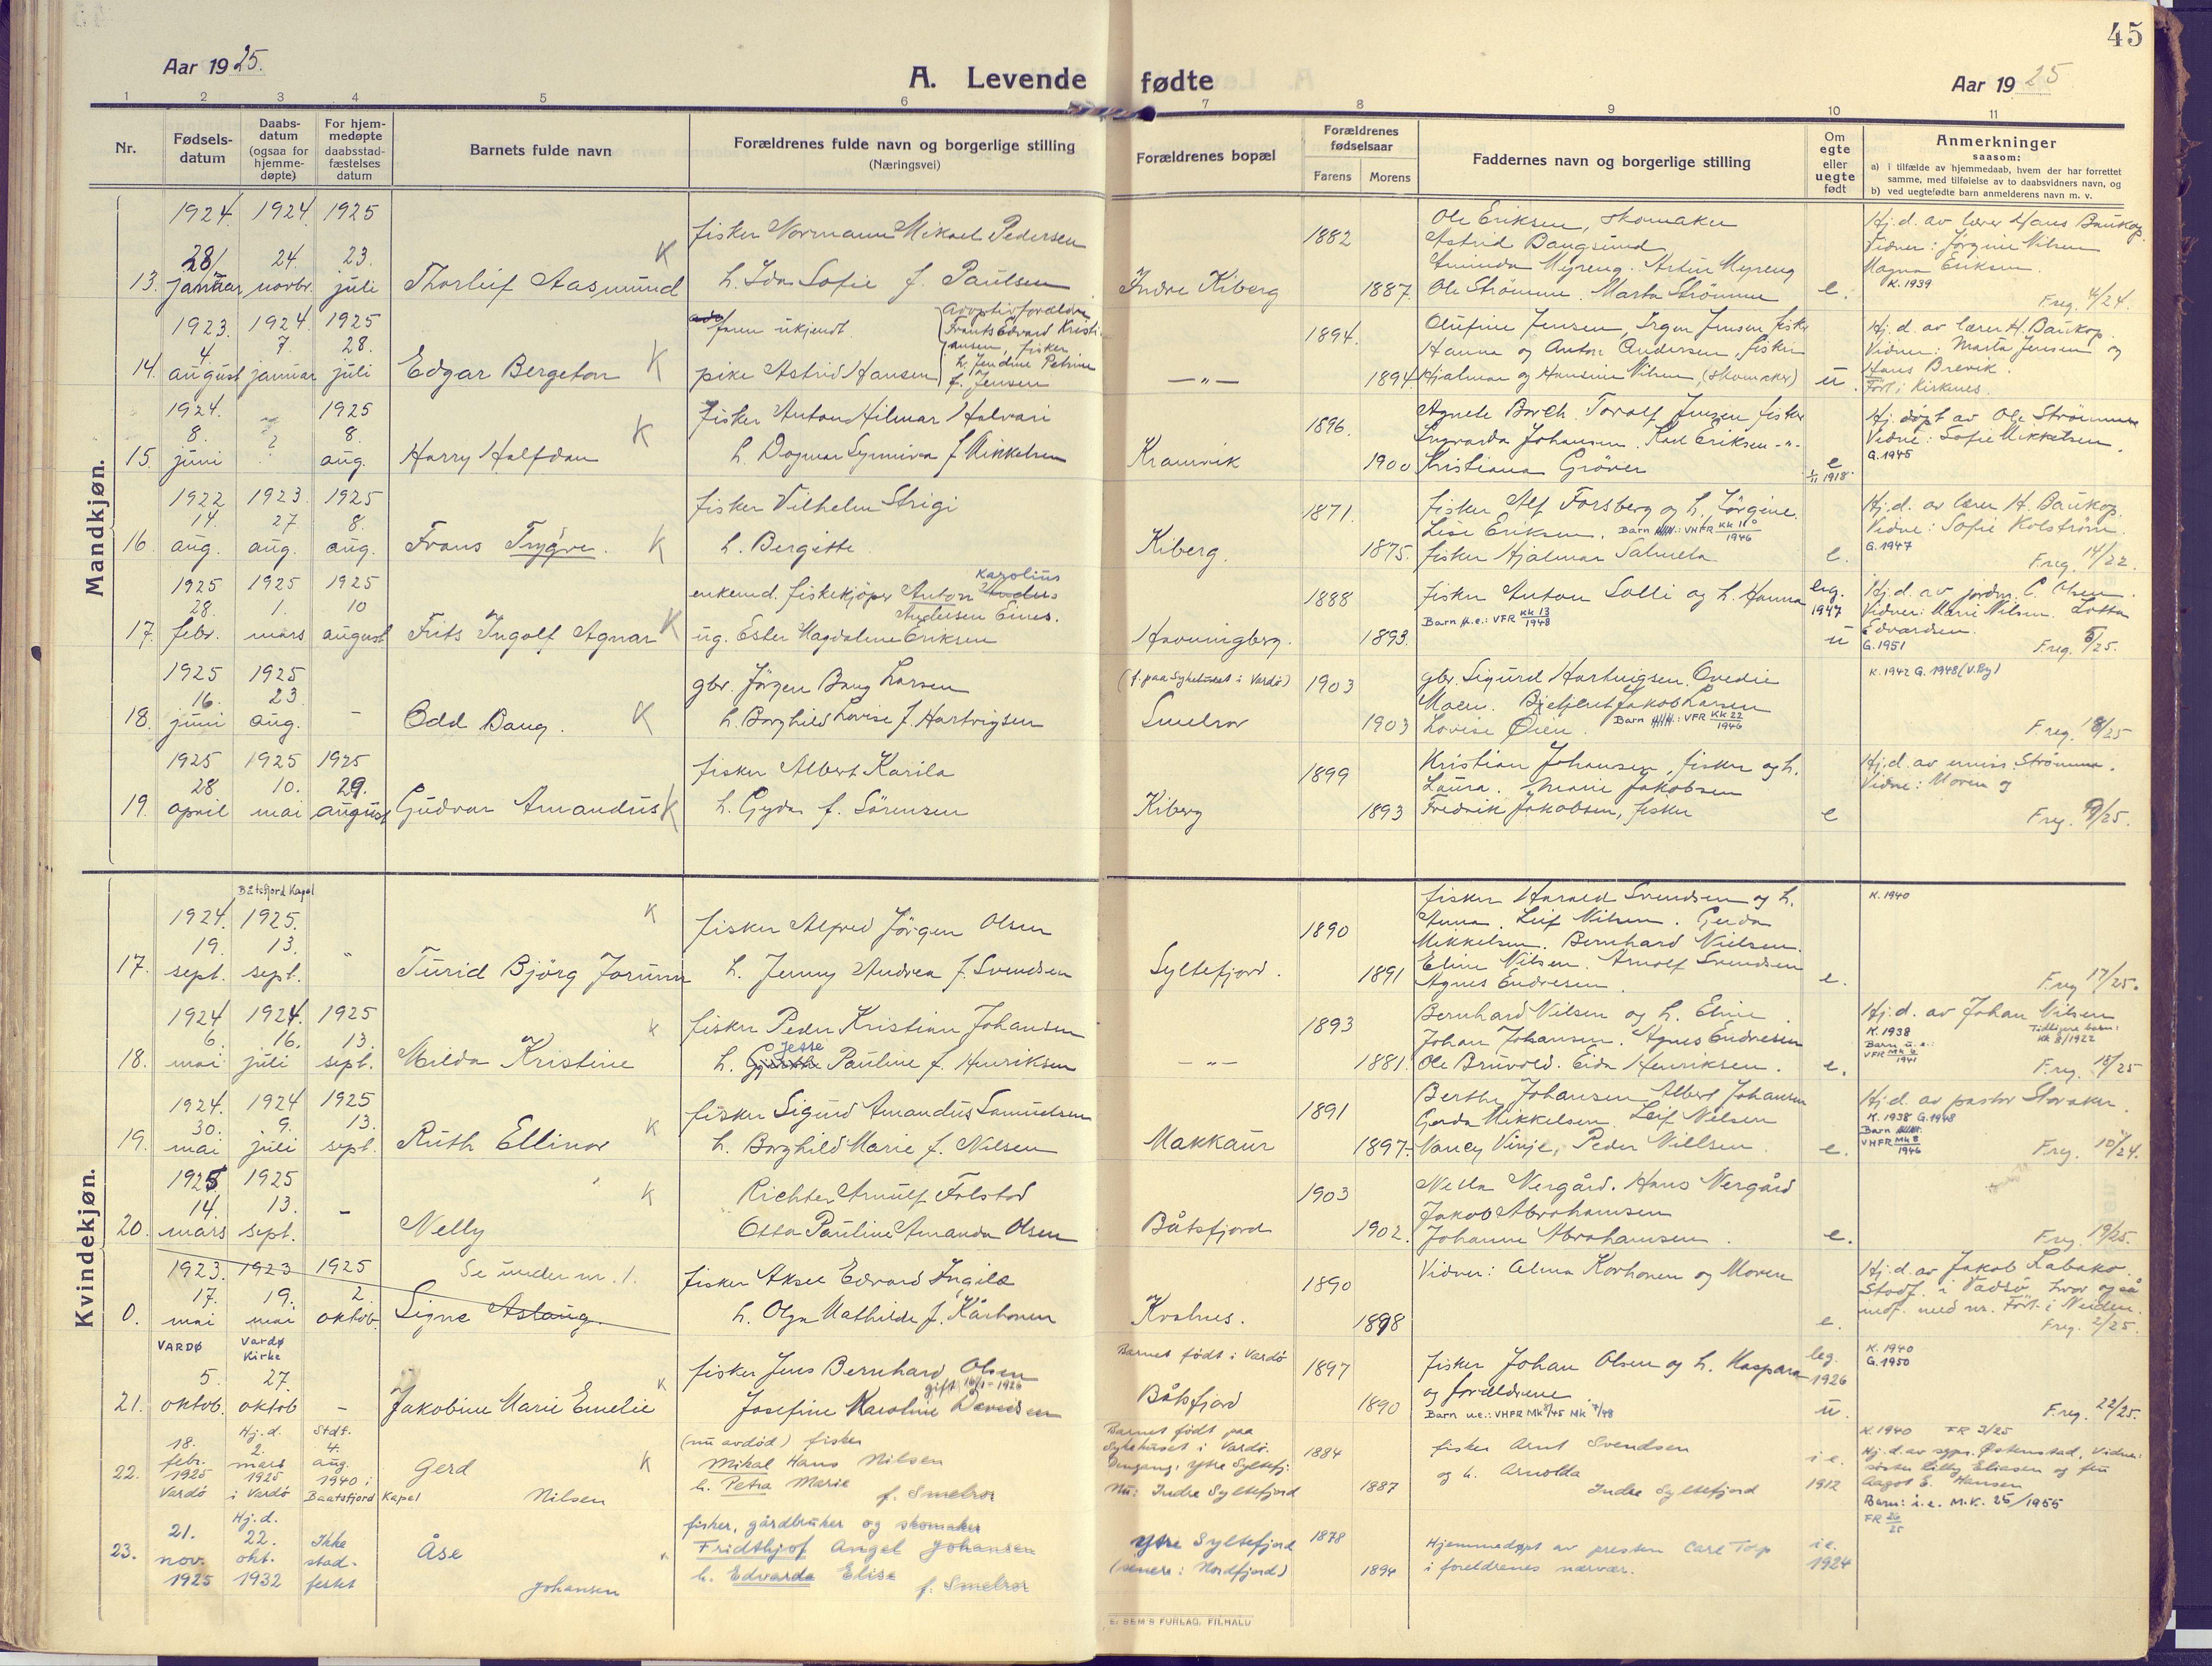 45
Aar 1925.
A. Levende fødte
Aar 1925
1 2 3 4 5 6 7 8 9 10 11
Nr.
Fødsels-
datum
Daabs-
datum
(ogsaa for
hjemme-
døpte)
For hjem-
medøpte
daabsstad-
fæstelses
datum
Barnets fulde navn
Forældrenes fulde navn og borgerlige stilling
(Næringsvei)
Forældrenes bopæl
Forældrenes
fødselsaar
Farens Morens
Faddernes navn og borgerlige stilling
Om
egte
eller
uegte
født
Anmerkninger
saasom:
a) i tilfælde av hjemmedaab, hvem der har forrettet
samme, med tilføielse av to daabsvidners navn, og
b) ved uegtefødte barn anmelderens navn m. v.
Mandkjøn.
1924 1924 1925
28/ 24. 23.
13. januar novbr. juli
Thorleif Aasmund K
fisker Normann Mikael Pedersen
h. Ida Sofie f. Paulsen
Indre Kiberg
1882
1887
Ole Eriksen, skomaker
Astrid Bangsund
Aminda Myreng. Artur Myreng
Ole Strømme. Marta Strømme
e.
Hj.d. av lærer Hans Baukop.
Vidner: Jørgine Nilsen
Magna Eriksen.
K. 1939
Freg. 4/24.
1923. 1924. 1925
4. 7. 28.
14. august januar juli
Edgar Bergeton K
faren ukjendt.
pike Astrid Hansen
Adoptivforældre
Frants Edvard Kristi-
ansen, fisker
h. Jendine Petrine
f. Jensen
— " —
1894.
1894
Olufine Jensen, Irgen Jensen fisker
Hanna og Anton Andersen, fisker
Hjalmar og Hansine Nilsen, (skomaker)
u.
Hj.d. av lærer H. Baukop.
Vidner: Marta Jensen og
Hans Brevik.
Født i Kirkenes.
1924. 1925
8. ? 8.
15. juni aug.
Harry Halfdan K
fisker Anton Hilmar Halvari
h. Dagmar Synniva f Mikkelsen
Kramvik
1896.
1900
Agnete Borch. Toralf Jensen fisker
Ingvarda Johansen. Karl Eriksen -"-
Kristiana Gröver
e
1/11 1918.
Hj. døpt av Ole Strömme
Vidne: Sofie Mikkelsen.
G. 1945
1922 1923. 1925
14. 27. 8.
16. aug. aug. aug.
Frans Trygve. K
fisker Vilhelm Strigi
h. Bergitte
Kiberg.
1871.
1875.
fisker Alf Forsberg og h. Jörgine.
Lise Eriksen.
fisker Hjalmar Salmela
e.
Hj.d. av lærer H. Baukop.
Vidne: Sofie Kolström.
G. 1947
Freg. 14/22.
1925 1925 1925
28. 1. 10
17. febr. mars august
Frits Ingolf Agnar K
enkemd. fiskekjøper Anton Karolius
Andersen Eines.
ug. Ester Magdalene Eriksen
Havningberg.
1888
1893.
fisker Anton Solli og h. Hanna
Barn u.e.: VFR Kk 13/1948
leg.
1947
u
Hj.d. av jordm. C. Olsen.
Vidner: Marie Nilsen. Lotta
Edvardsen.
G. 1951
Freg. 5/25.
1925 1925
16. 23.
18. juni aug. -
Odd Bang. K
gbr. Jörgen Bang Larsen
h. Borghild Lovise f. Hartvigsen
(f. paa Sykehuset i Vardö)
Smelror
1903
1903
gbr. Sigurd Hartvigsen. Ovedie
Moen. Jakob Larsen
Lovise Øien.
Barn VFR Kk 22/1946
K. 1942 G. 1948 (V.By)
F.reg. 8/25
1925 1925 1925
28 10. 29.
19. april mai august
Gudvar Amandus K
fisker Albert Karila
h. Gyda f. Sörensen
Kiberg
1899
1893
Kristian Johansen, fisker og h.
Laura. Marie Jakobsen
Fredrik Jakobsen, fisker
e
Hj.d. av emiss. Strömme.
Vidne: Moren og
Freg. 9/25.
Kvindekjøn.
Båtsfjord Kapel
1924. 1925.
19. 13. "
17. sept. sept.
Turid Björg Jorunn K
fisker Alfred Jörgen Olsen
h. Jenny Andrea f. Svendsen
Syltefjord.
1890
1891
fisker Harald Svendsen og h.
Anna. Leif Nilsen. Gerda
Mikkelsen. Bernhard Nielsen.
Eline Nilsen. Arnolf Svendsen
Agnes Endresen.
e.
K. 1940
F.reg 17/25.
1924 1924. 1925
6. 16. 13.
18. mai juli sept.
Milda Kristine K
fisker Peder Kristian Johansen
h. Jesse Pauline f. Henriksen
— " —
1893
1881.
Bernhard Nilsen og h. Eline.
Johan Johansen. Agnes Endresen
Ole Bruvold. Eida Henriksen.
e.
Hj.d. av Johan Nilsen
K. 1938 Tidligere barn:
Kk 8/1922
Barn u.e.:
VFR Mk 6/1941
F.reg. 18/25
1924. 1924 1925
30. 9. 13.
19. mai juli sept.
Ruth Ellinor K
fisker Sigurd Amandus Samuelsen
h. Borghild Marie f. Nilsen
Makkaur
1891
1897.
Berthe Johansen. Albert Johansen
Gerda Mikkelsen. Leif Nilsen
Nancy Vinje, Peder Nillsen.
e.
Hj.d. av pastor Storaker.
K. 1938 G. 1948
Barn
VHFR Mk 8/1946
Freg. 10/24.
1925 1925
14. 13. -
20. mars sept.
Nelly K
Richter Arnulf Falstad
Otta Pauline Amanda Olsen
Båtsfjord
1903
1902.
Nella Nergård. Hans Nergård
Jakob Abrahamsen
Johanne Abrahamsen.
e.
Freg. 19/25.
1923. 1923 1925
17. 19. 2.
0. mai mai oktob.
Se under nr. 1.
Signe Aslaug.
fisker Aksel Edvard Ingilæ
h. Olga Mathilde f. Kårhonen
Kvalnes.
1890
1898
Vidner: Alma Korhonen og Moren
e.
Hj.d. av Jakob Labako.
Stadf. i Vadsö, hvor også
medf. med nr. Född i Neiden.
Freg. 2/25.
VARDØ Vardø
Kirke
5. 27.
21. oktob. oktob -
Jakobine Marie Emelie K
fisker Jens Bernhard Olsen
gift 16/1 - 1926
Josefine Karoline Davidsen
Barnet födt i Vardö
Båtsfjord
1897
1890
fisker Johan Olsen og h. Kaspara
og forældrene
Barn u.e.: VHFR Mk 8/45 Mk 7/48
leg.
1926
u.
K. 1940
G. 1950
F.reg. 22/25.
18. Hj.d. Stdf.
febr. 2. 4.
22. 1925 mars aug.
Vardö 1925 1940 i
i Vardö Baatsfjord Kapel
Gerd K
Nilsen
(nu avdöd) fisker
Mikal Hans Nilsen
h. Petra Marie
f. Smelror
Barnet födt paa
Sykehuset i Vardö.
Dengang: Ytre Syltefj:
Nu: Indre Syltefjord
1884
1887
fisker Arnt Svendsen
og h. Arnolda
Indre Syltefjord
i e.
1912
K. 1940 FR 3/25
Hj.d. av sgpr. Østenstad, Vidner:
søster Lilly Eliasen og fru
Aagot E. Hansen
Barn: i.e. M.K. 25/1955
FR 26/25
Hj.d.
21. 22. Ikke
23. nov. okt. stad-
1925 1932 festet
Åse
Johansen
fisker, gårdbruker og skomaker
Fridthjof Angel Johansen
h. Edvarda Elise
f. Smelror
Ytre Syltefjord
(senere: Nordfjord)
1878
1894
Hjemmedøpt av presten Carl Torp
i foreldrenes nærvær.
i e.
1924
E. SEM'S FORLAG, F.HALD